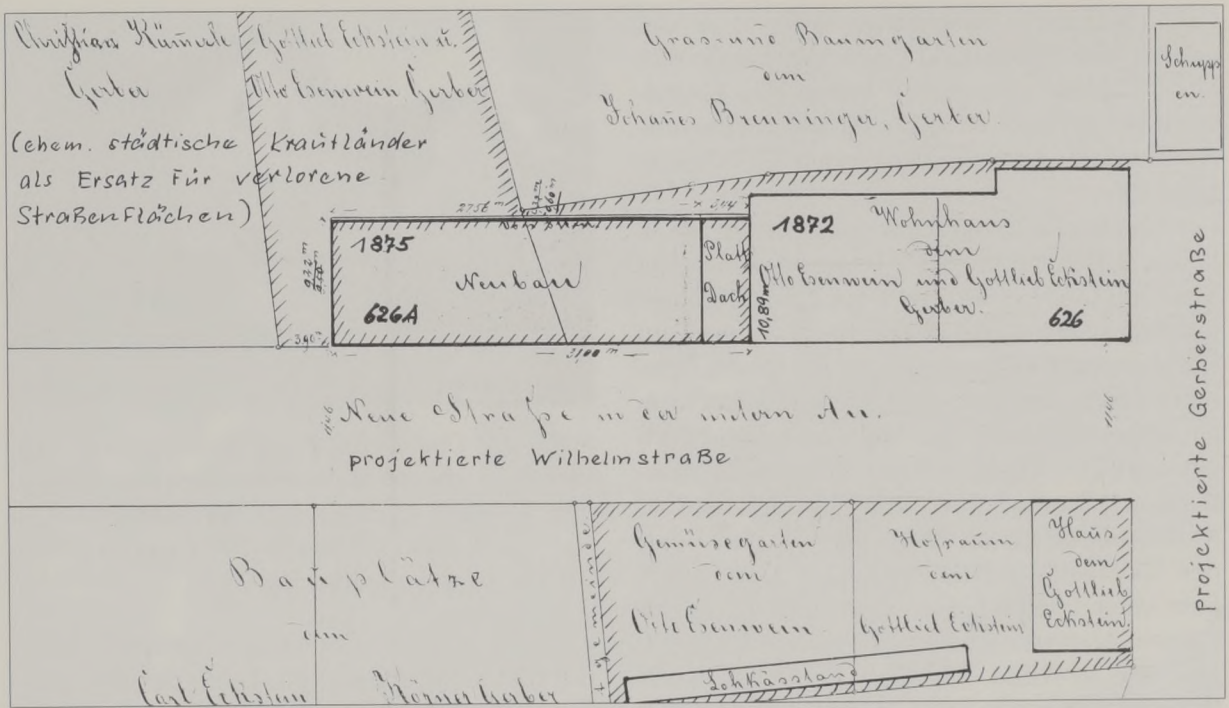 Christian Kümerle
Gerber
(ehem. städtische Krautländer
als Ersatz für verlorene
Straßenflächen)
Gottlieb Eckstein u.
Otto Esenwein Gerber
Gras- und Baumgarten
dem
Johañes Breuninger, Gerber.
Schupp
en.
27,56 m
3,44 m
1875
Neubau
626A
Platt
Dach
10,89 m
1872
Wohnhaus
dem
Otto Esenwein und Gottlieb Eckstein
Gerber.
626
3,90
31,00 m
11,46
11,46
Neue Straße in der untern Au.
projektierte Wilhelmstraße
projektierte Gerberstraße
Bauplätze
dem
Carl Eckstein
Körner Gerber
tgemeinde
Gemüsegarten
dem
Otto Esenwein
Hofraum
dem
Gottlieb Eckstein
Haus
dem
Gottlieb
Eckstein.
Lohkässtand